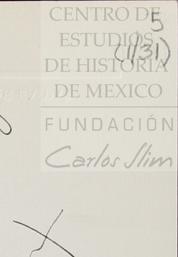 5
(1/31)
CENTRO DE
ESTUDIOS
DE HISTORIA
DE MEXICO
FUNDACIÓN
Carlos Slim